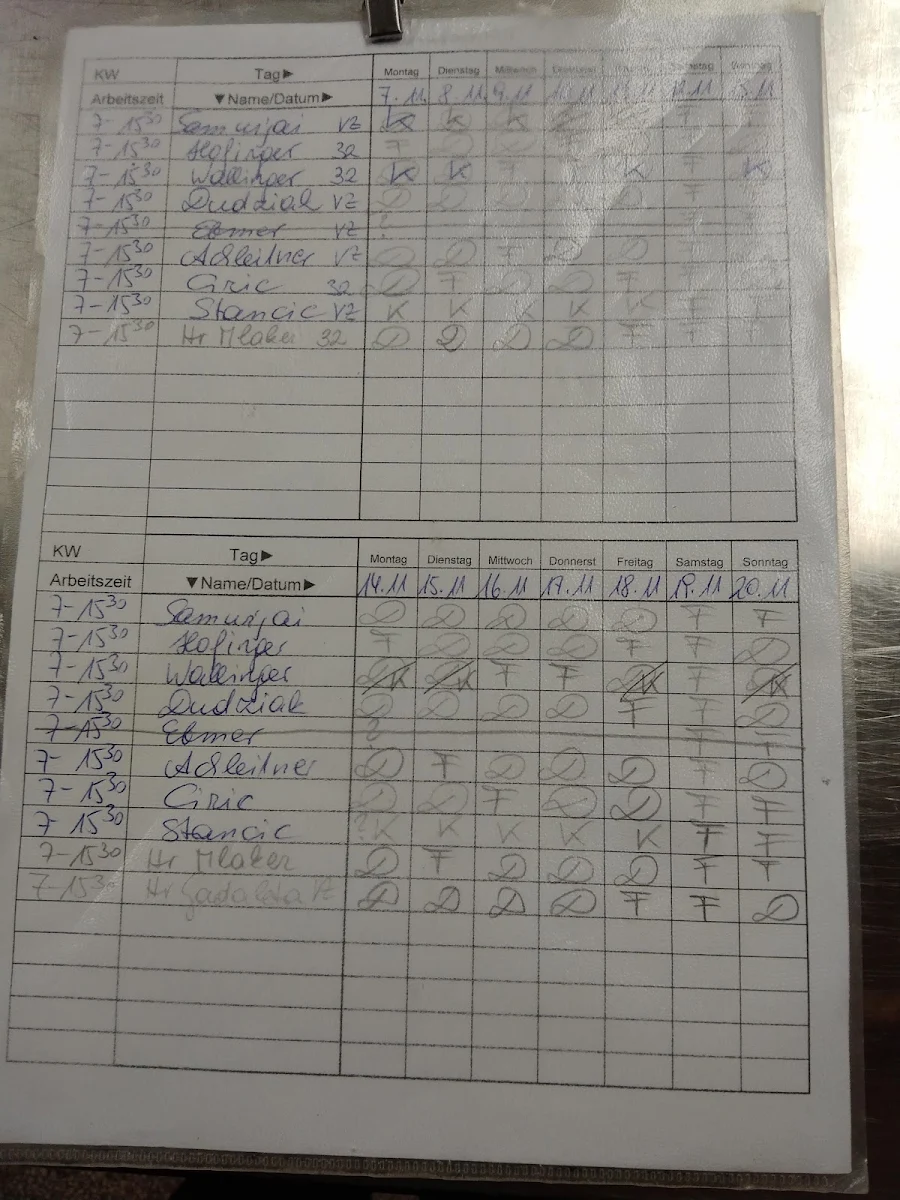 KW Tag▶ Montag Dienstag Mittwoch
Arbeitszeit ▼Name/Datum▶ 7.11 8.11 9.11 12.11
7-15³⁰ Samurjai VZ K K K F
7-15³⁰ Hofinger 32 F D D
7-15³⁰ Wallinger 32 K K F K F K
7-15³⁰ Dudziak VZ D D D F
7-15³⁰ Ebmer VZ ?
7-15³⁰ Achleitner VZ D D F D D
7-15³⁰ Ciric 32 D F D D F
7-15³⁰ Stancic VZ K K K K K F
7-15³⁰ Hr Mlaker 32 D D D D F F
KW Tag▶ Montag Dienstag Mittwoch Donnerst Freitag Samstag Sonntag
Arbeitszeit ▼Name/Datum▶ 14.11 15.11 16.11 17.11 18.11 19.11 20.11
7-15³⁰ Samurjai D D D D D F F
7-15³⁰ Hofinger F D D D F F D
7-15³⁰ Wallinger K K F F K F K
7-15³⁰ Dudziak D D D D F F D
7-15³⁰ Ebmer ? F F
7-15³⁰ Achleitner D F D D D F D
7-15³⁰ Ciric D D F D D F F
7-15³⁰ Stancic K K K K K F F
7-15³⁰ Hr Mlaker D F D D D F F
7-15³⁰ Hr VZ D D D D F F D